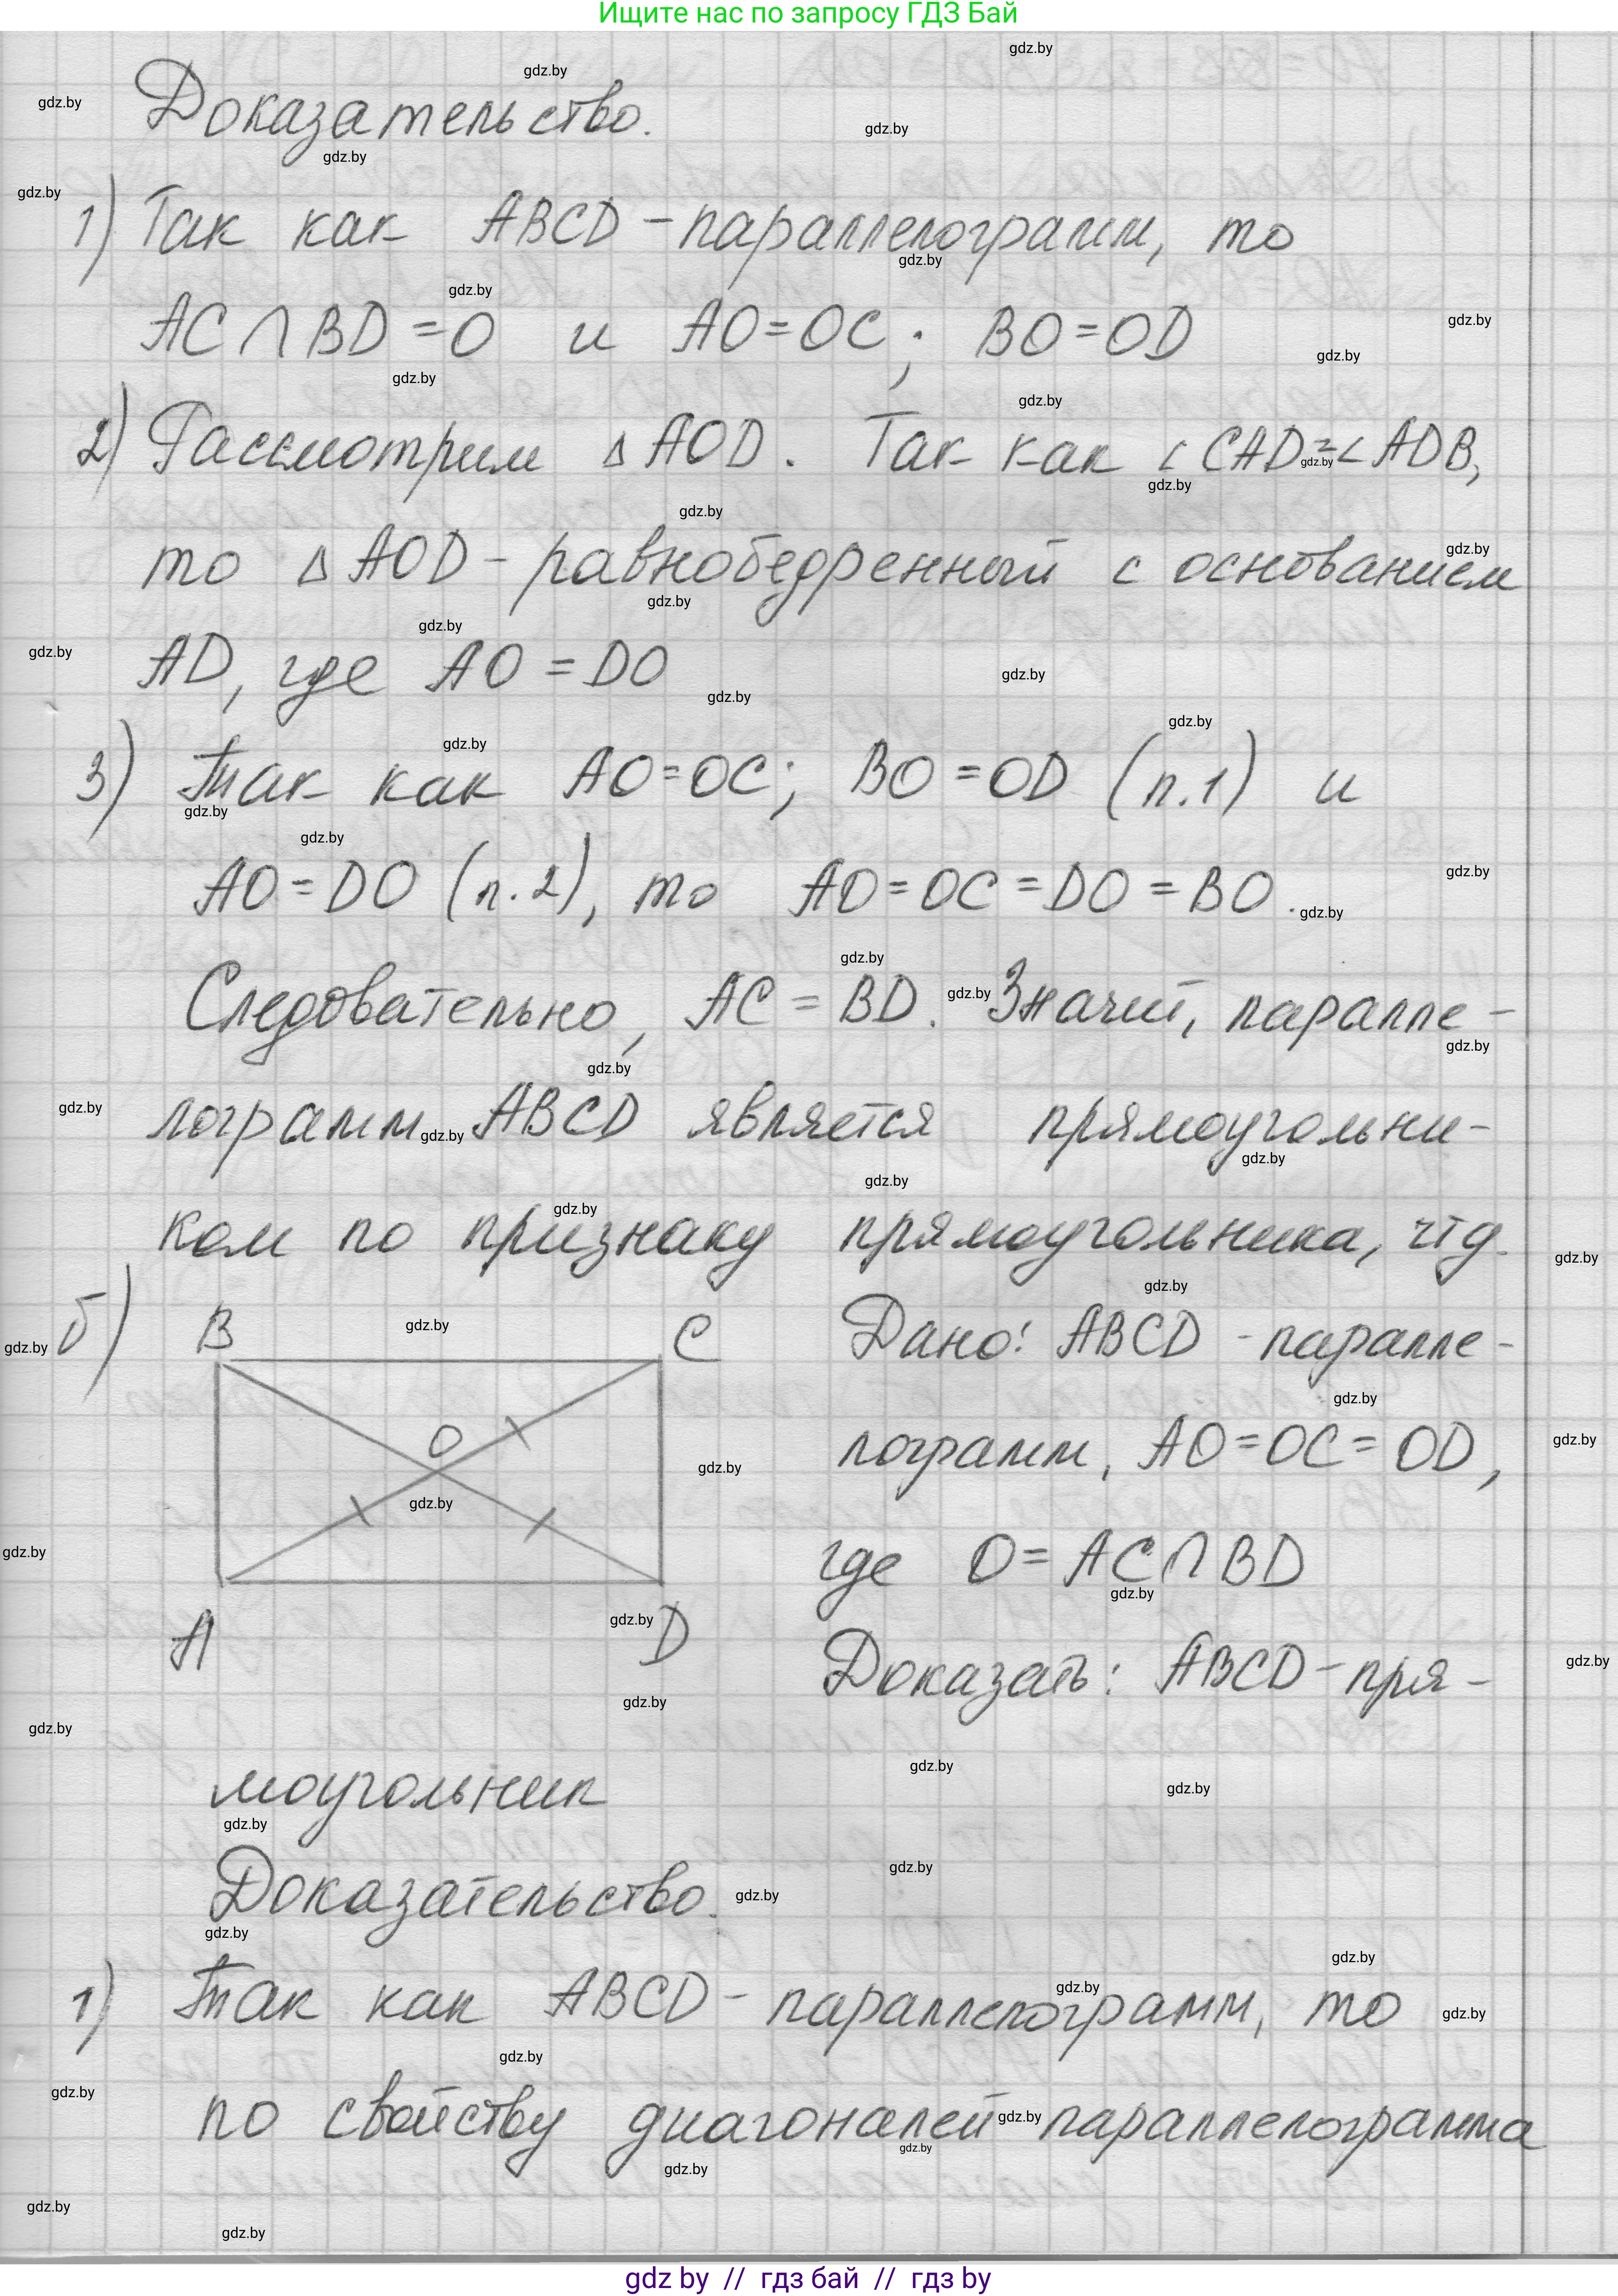 Ищите нас по запросу ГДЗ Бай
Доказательство.
1) Так как ABCD - параллелограмм, то
AC ∩ BD = O и AO = OC; BO = OD
2) Рассмотрим △ AOD. Так как ∠ CAD = ∠ ADB,
то △ AOD - равнобедренный с основанием
AD, где AO = DO
3) Так как AO = OC; BO = OD (п.1) и
AO = DO (п.2), то AO = OC = DO = BO.
Следовательно, AC = BD. Значит, паралле-
лограмм ABCD является прямоугольни-
ком по признаку прямоугольника, чтд.
б) B C Дано: ABCD - паралле-
лограмм, AO = OC = OD,
O
где O = AC ∩ BD
A D Доказать: ABCD - пря-
моугольник
Доказательство.
1) Так как ABCD - параллелограмм, то
по свойству диагоналей параллелограмма
gdz by // гдз бай // гдз by